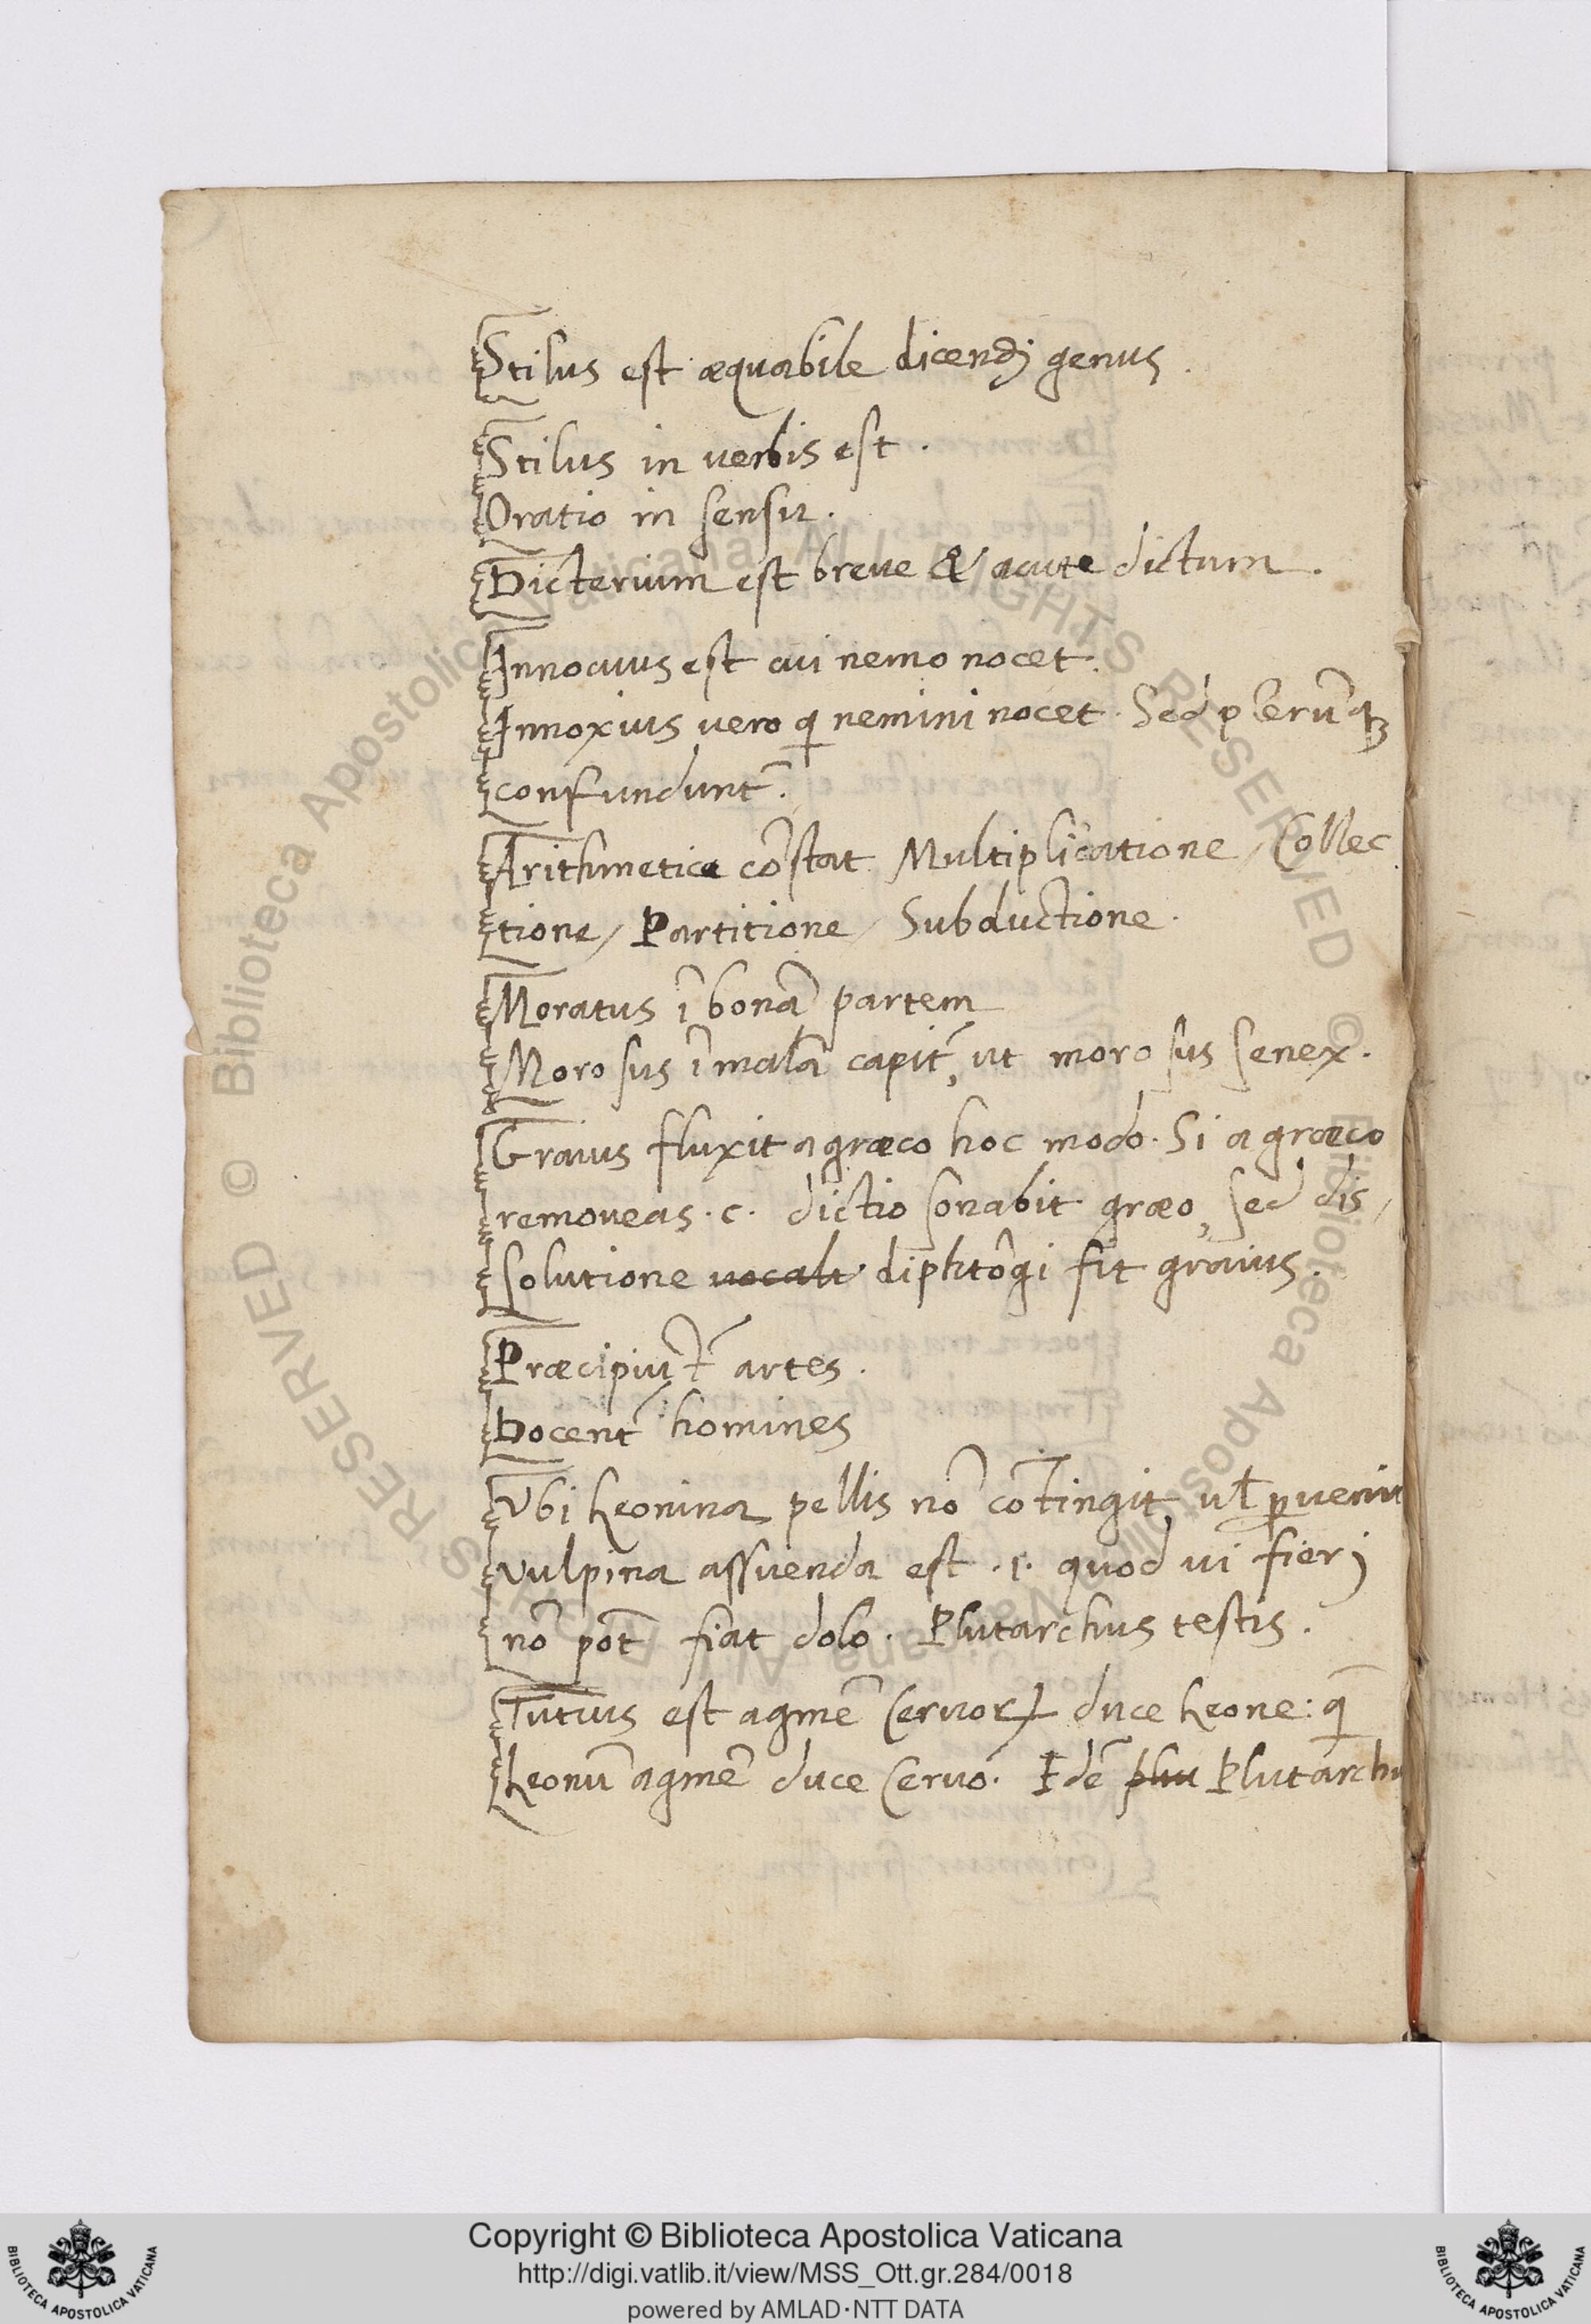 Stilus est æquabile dicendj genus.
Stilus in verbis est.
Oratio in sensu.
Dicterium est breue & acute dictum.
Innocuus est cui nemo nocet.
Innoxius vero q̄ nemini nocet. Sed plerūqꝫ
confundunt᷑.
Arithmetica cōstat Multiplicatione / Collec
tione / Partitione / Subductione.
Moratus ī bonā partem
Morosus ī malā capit᷑, ut morosus senex.
Graius fluxit a græco hoc modo. Si a græco
remoueas .c. dictio sonabit græo, sed dis/
solutione diphtōgi fit graius.
Præcipiūt᷑ artes.
Docent᷑ homines
Vbi Leonina pellis nō cōtingit, ul̄ ꝑuenit
vulpina assuenda est .i. quod ui fierj
nō pōt fiat dolo. Plutarchus testis.
Tutius est agmē Ceruoꝝ duce Leone: q̄
Leonū agmē duce Ceruo. Idē Plutarchu
Copyright © Biblioteca Apostolica Vaticana
http://digi.vatlib.it/view/MSS_Ott.gr.284/0018
powered by AMLAD·NTT DATA
BIBLIOTECA APOSTOLICA VATICANA
BIBLIOTECA APOSTOLICA VATICANA
© Biblioteca Apostolica Vaticana ALL RIGHTS RESERVED
© Biblioteca Apostolica Vaticana ALL RIGHTS RESERVED